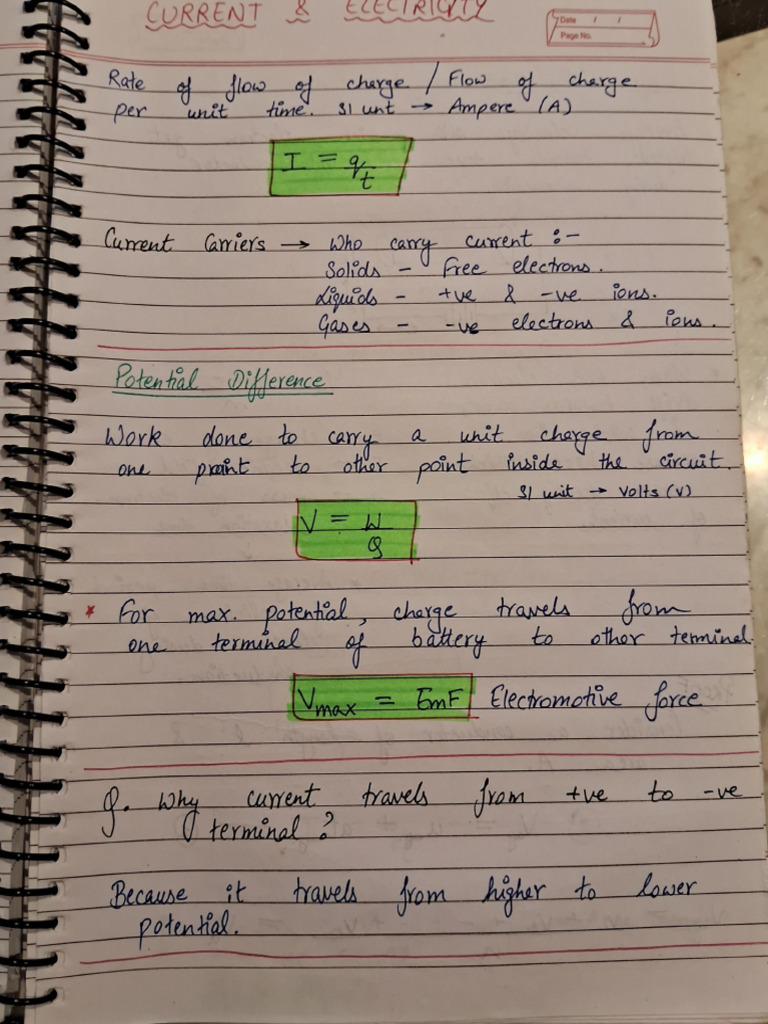 CURRENT & ELECTRICITY
Date / /
Page No.
Rate of flow of charge / Flow of charge
per unit time. SI unt → Ampere (A)
I = q/t
Current Carriers → Who carry current :-
Solids - Free electrons.
Liquids - +ve & -ve ions.
Gases - -ve electrons & ions.
Potential Difference
Work done to carry a unit charge from
one point to other point inside the circuit.
SI unit → Volts (V)
V = W/Q
* For max. potential, charge travels from
one terminal of battery to other terminal.
Vmax = EmF Electromotive force
Q. Why current travels from +ve to -ve
terminal?
Because it travels from higher to lower
potential.